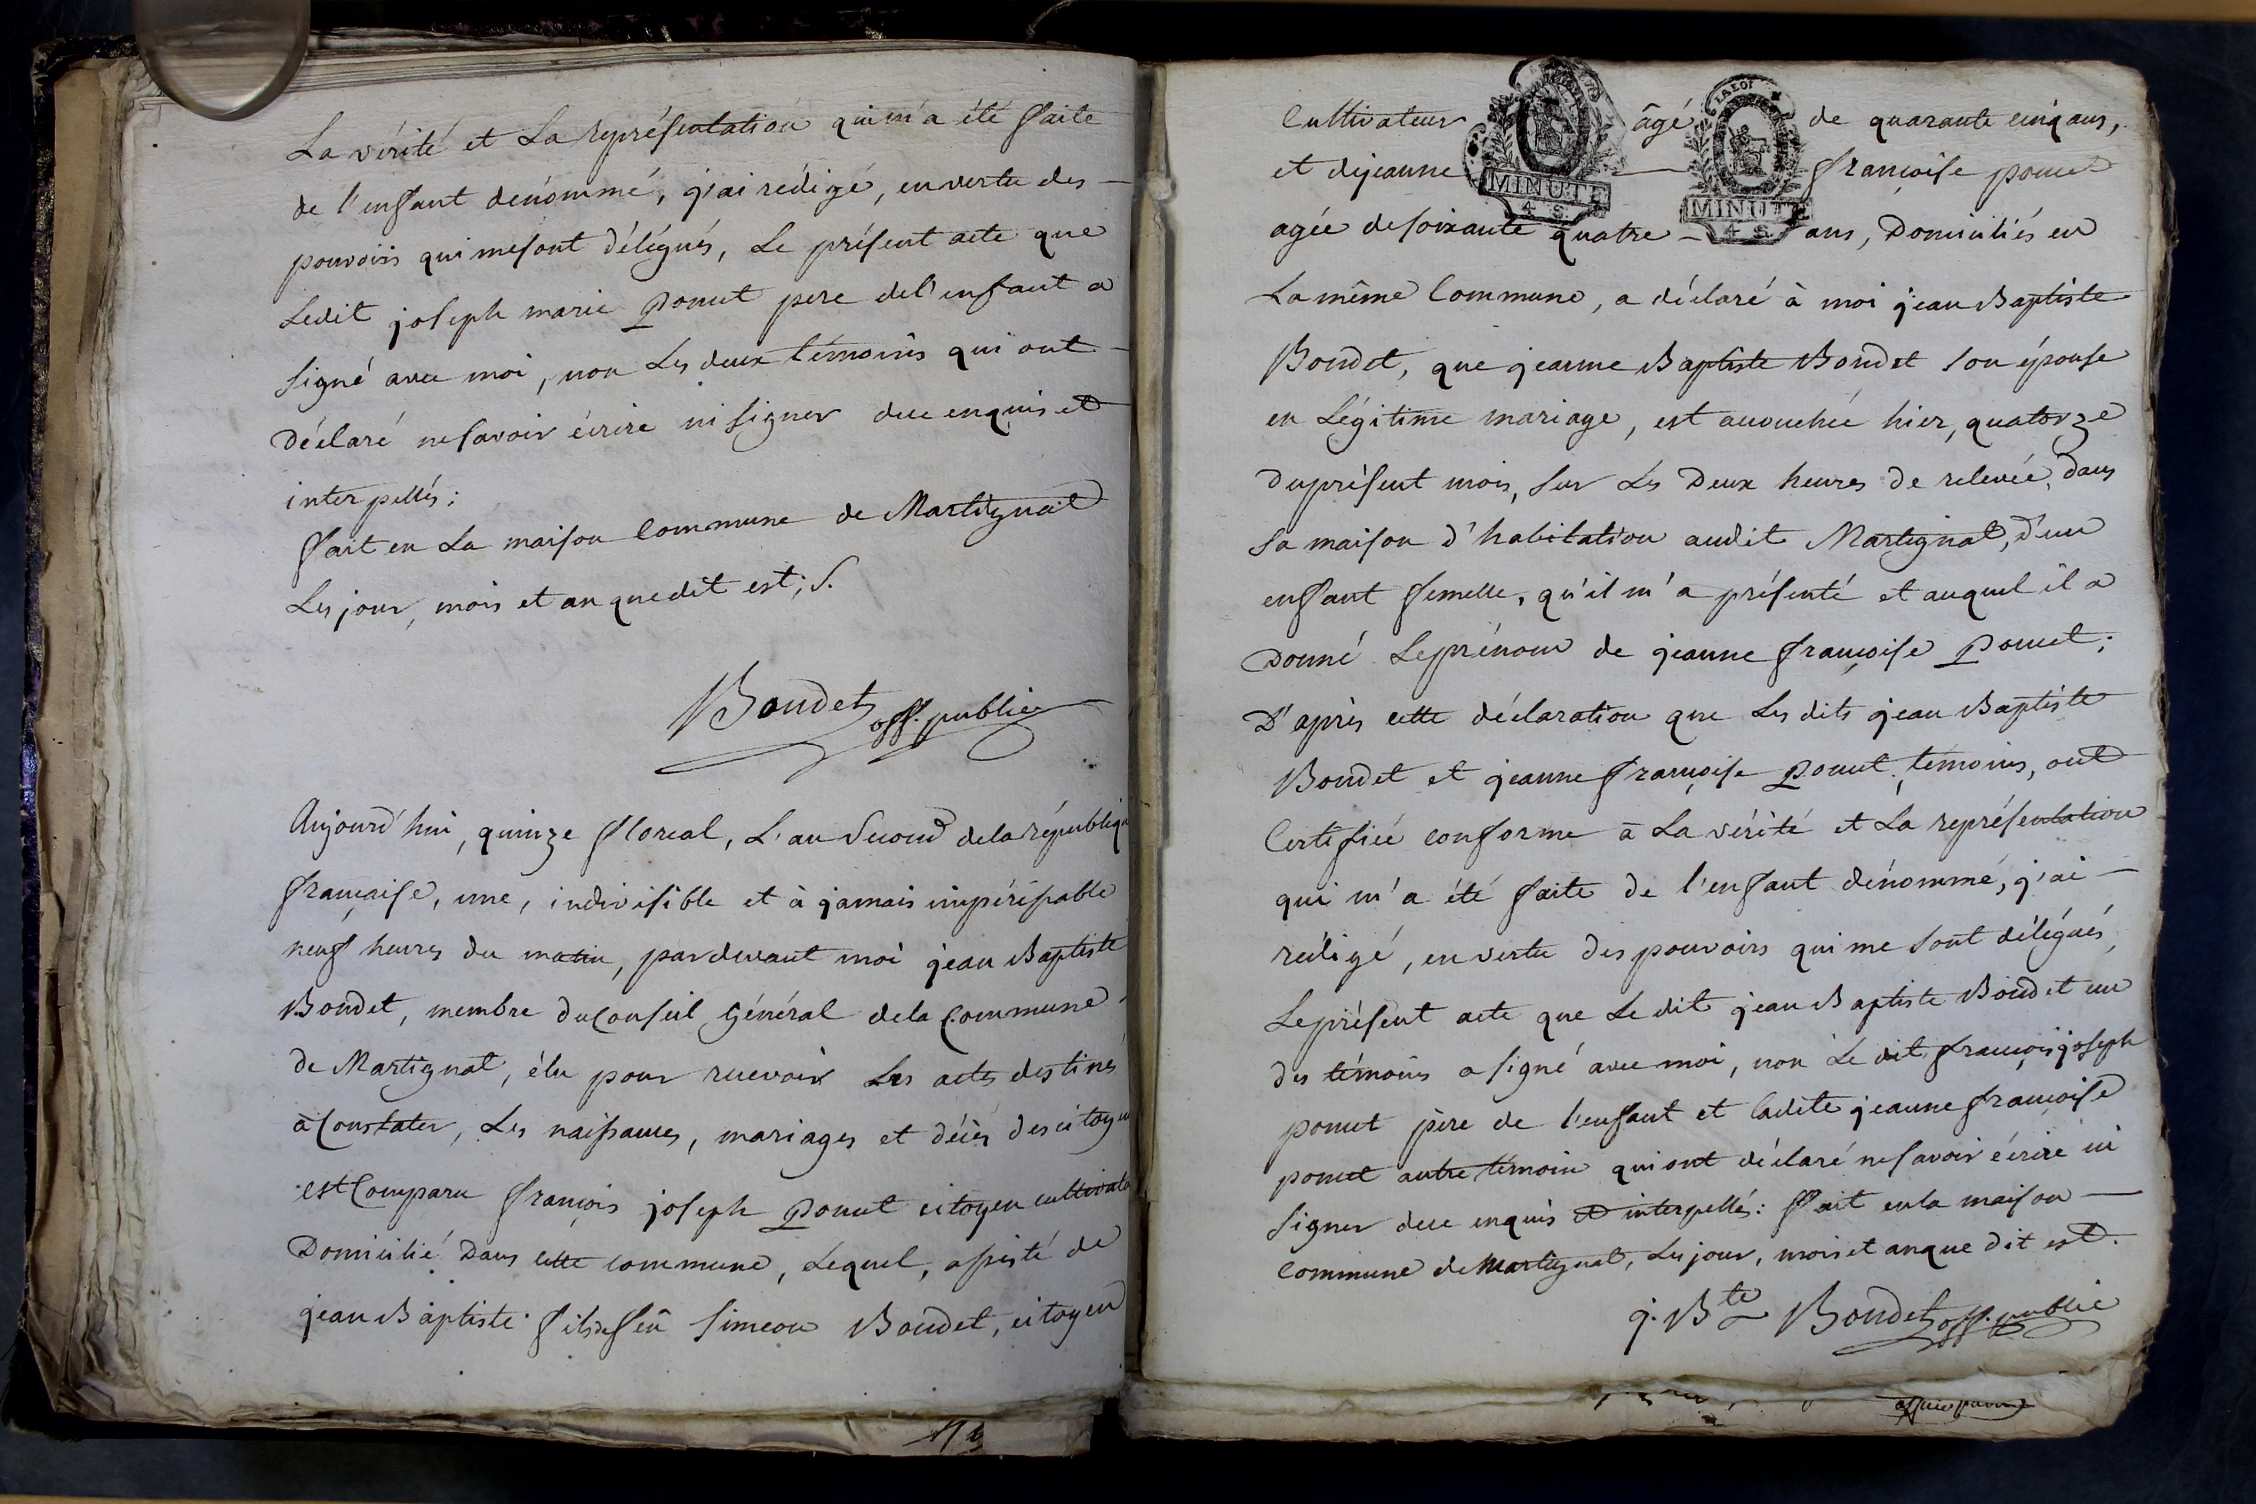 La vérité et La représentation qui m'a été faite
de l'enfant dénommé, j'ai redigé, en vertu des —
pouvoirs qui me sont délégués, Le présent acte que
Ledit joseph marie Ponut pere de l'enfant a
signé avec moi, non Les deux témoins qui ont —
Déclaré ne savoir écrire ni signer de ce enquis et
interpellés;
fait en La maison Commune de Martignat
Les jour, mois et an que dit est; S.
Boudet off. public
Aujourd'hui, quinze floreal, L'an Second de la républiq
française, une, indivisible et à jamais impérissable
neuf heures du matin, pardevant moi jean Baptiste
Boudet, membre du Conseil Général de la Commune
de Martignat, élu pour recevoir Les actes destinés
à Constater, Les naissances, mariages et décès des citoyen
est Comparu françois joseph Ponut citoyen cultivate
Domicilié Dans cette commune, Lequel, assisté de
jean Baptiste fils de feû Simeon Boudet, citoyen
Cultivateur âgé de quarante cinq ans,
et de jeanne — françoise ponut
agée de soixante quatre — ans, Domiciliés en
MINUTE
4 S.
LA LOI
MINUTE
4 S.
La même Commune, a déclaré à moi jean Baptiste
Boudet, que jeanne Baptiste Boudet son épouse
en Légitime mariage, est accouchée hier, quatorze
du présent mois, sur Les Deux heures de relevée, dans
sa maison d'habitation audit Martignat, d'un
enfant femelle, qu'il m'a présenté et auquel il a
Donné Le prénom de jeanne françoise Ponut;
D'après cette déclaration que Les dits jean Baptiste
Boudet et jeanne françoise Ponut, témoins, ont
Certifiée conforme à La vérité et La représentation
qui m'a été faite de l'enfant dénommé, j'ai —
rédigé, en vertu des pouvoirs qui me sont délégués,
Le présent acte que Le dit jean Baptiste Boudet un
des témoins a signé avec moi, non Le dit françois joseph
ponut père de l'enfant et Ladite jeanne françoise
ponut autre témoin qui ont déclaré ne savoir écrire ni
signer de ce enquis et interpellés: fait en la maison —
Commune de Martignat, Les jour, mois et an que dit est.
j. Bte Boudet off. public